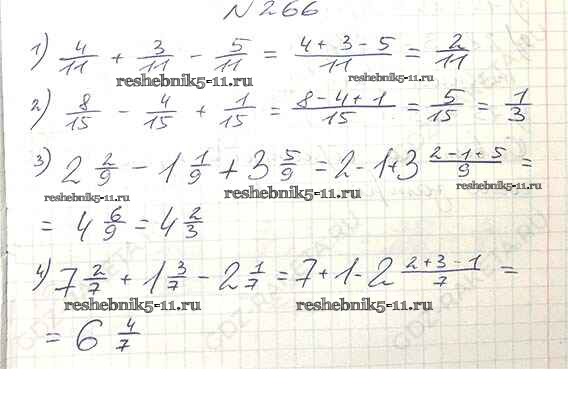 N 266
1) 4/11 + 3/11 - 5/11 = (4+3-5)/11 = 2/11
reshebnik5-11.ru reshebnik5-11.ru
2) 8/15 - 4/15 + 1/15 = (8-4+1)/15 = 5/15 = 1/3
3) 2 2/9 - 1 1/9 + 3 5/9 = 2-1+3 (2-1+5)/9 =
reshebnik5-11.ru reshebnik5-11.ru
= 4 6/9 = 4 2/3
4) 7 2/7 + 1 3/7 - 2 1/7 = 7+1-2 (2+3-1)/7 =
reshebnik5-11.ru reshebnik5-11.ru
= 6 4/7